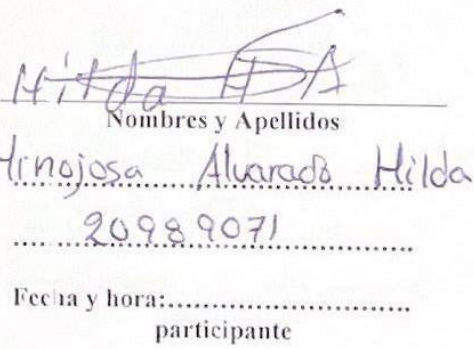 Hilda HDA
Nombres y Apellidos
Hinojosa Alvarado Hilda
20989071
Fecha y hora:...................................
participante